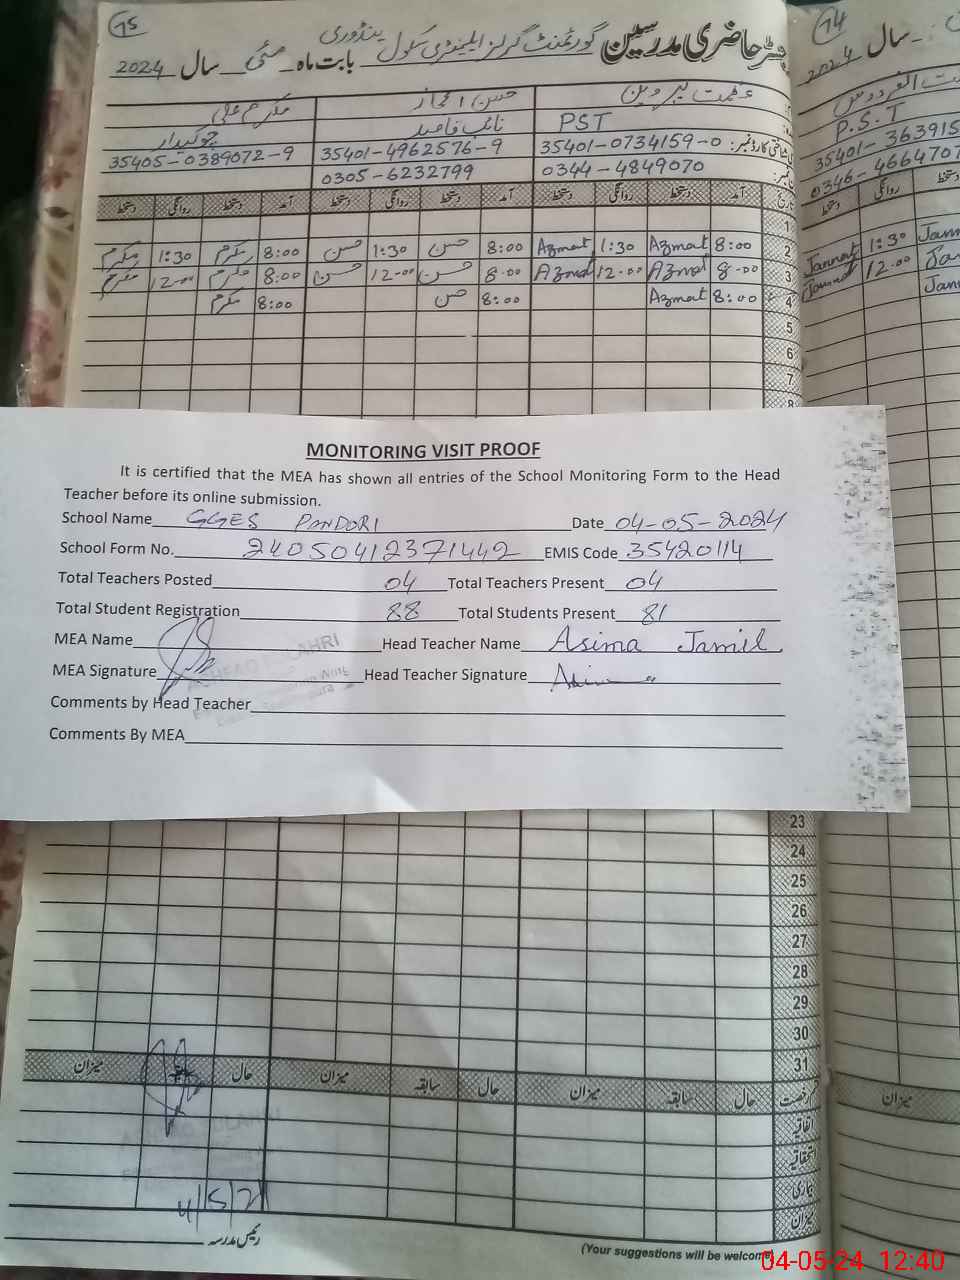 75
رجسٹر حاضری مدرسین گورنمنٹ گرلز ایلیمنٹری سکول پنڈوری بابت ماہ مئی سال 2024
عظمت پروین حسن اعجاز مکرم علی
PST نائب قاصد چوکیدار
35401-0734159-0 35401-4962576-9 35405-0389072-9
0344-4849070 0305-6232799
تاریخ آمد دستخط روانگی دستخط آمد دستخط روانگی دستخط آمد دستخط روانگی دستخط
1
2 8:00 Azmat 1:30 Azmat 8:00 حسن 1:30 حسن 8:00 مکرم 1:30 مکرم
3 8-00 Azmat 12-00 Azmat 8-00 حسن 12-00 حسن 8:00 مکرم 12-00 مکرم
4 8:00 Azmat 8:00 حسن 8:00 مکرم
5
6
7
8
74
سال 2024
P.S.T
35401-363915
0346-4664707
دستخط روانگی دستخط
Jannat 1:30 Jann
Jannat 12-00 Ja
Jan
MONITORING VISIT PROOF
It is certified that the MEA has shown all entries of the School Monitoring Form to the Head
Teacher before its online submission.
School Name GGES PANDORI Date 04-05-2024
School Form No. 24050412371442 EMIS Code 35420114
Total Teachers Posted 04 Total Teachers Present 04
Total Student Registration 88 Total Students Present 81
MEA Name Head Teacher Name Asima Jamil
MEA Signature Head Teacher Signature
Comments by Head Teacher
Comments By MEA
23
24
25
26
27
28
29
30
31
قسم رخصت حال سابقہ میزان حال سابقہ میزان حال میزان
اتفاقیہ
استحقاقیہ
بیماری
میزان
میزان
4/5/24
رئیس مدرسہ
(Your suggestions will be welcome)
04-05-24 12:40